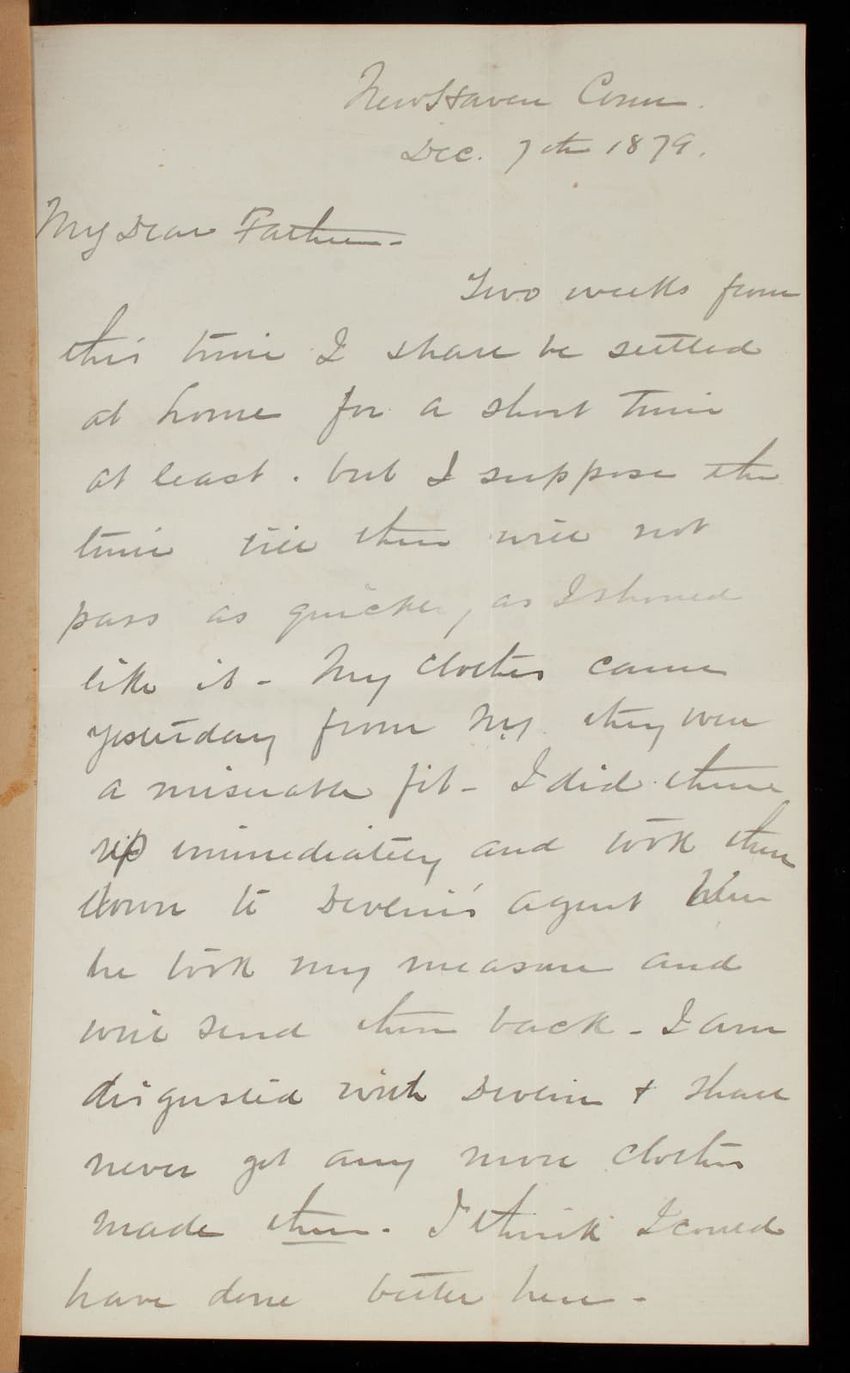 New Haven Conn.
Dec. 7th 1879.
My Dear Father -
Two weeks from
this time I shall be settled
at home for a short time
at least. but I suppose the
time till then will not
pass as quickly, as I should
like it - My clothes came
yesterday from N.Y. they were
a miserable fit - I did them
up immediately and took them
down to Devlin's agent here
he took my measure and
will send them back - I am
disgusted with Devlin & shall
never get any more clothes
made there. I think I could
have done better here -